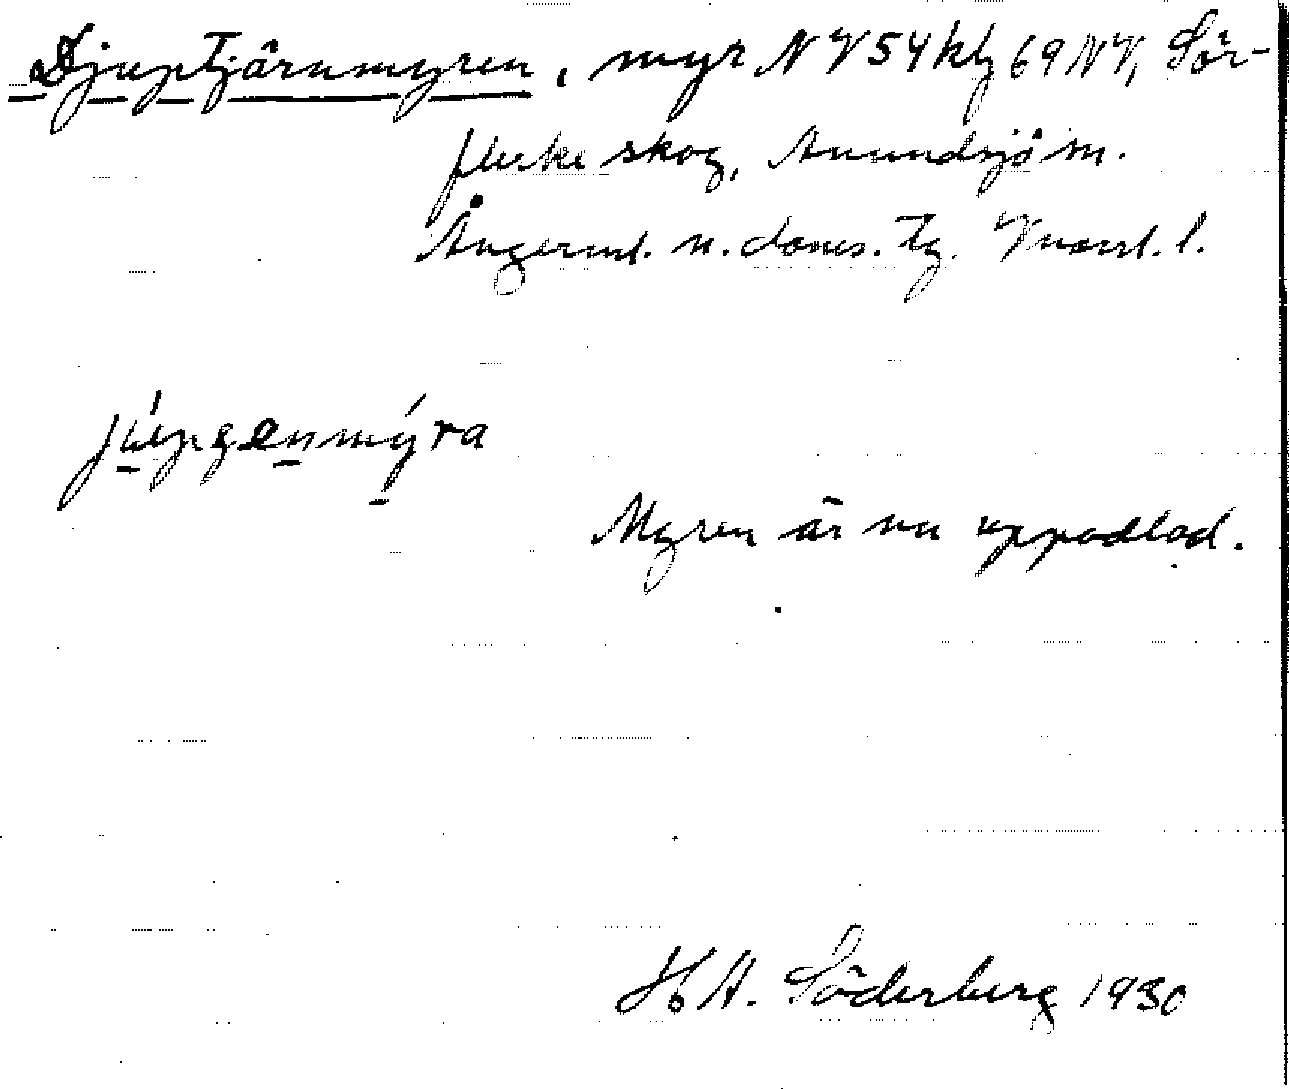 Djuptjärnmyren, myr NV 54 blz 69 NV, Sör-
flerke skog, Anundsjö sn.
Ångerml. n. doms. tg. Vnorrl. l.
júpɕenmýra
Myren är nu uppodlad.
H A. Söderberg 1930